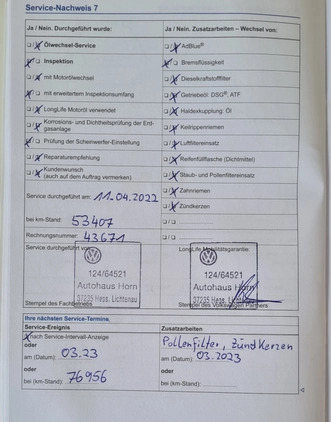 Service-Nachweis 7
Ja / Nein. Durchgeführt wurde:
Ölwechsel-Service
Inspektion
mit Motorölwechsel
mit erweitertem Inspektionsumfang
LongLife Motoröl verwendet
Korrosions- und Dichtheitsprüfung der Erdgasanlage
Prüfung der Scheinwerfer-Einstellung
Reparaturempfehlung
Kundenwunsch
(auch auf dem Auftrag vermerken)
Service durchgeführt am: 11.04.2022
bei km-Stand: 53407
Rechnungsnummer: 43671
Service durchgeführt von:
124/64521
Autohaus Horn
37235 Hess. Lichtenau
Stempel des Fachbetriebs
Ja / Nein. Zusatzarbeiten – Wechsel von:
AdBlue®
Bremsflüssigkeit
Dieselkraftstofffilter
Getriebeöl: DSG®, ATF
Haldexkupplung: Öl
Keilrippenriemen
Luftfiltereinsatz
Reifenfüllflasche (Dichtmittel)
Staub- und Pollenfiltereinsatz
Zahnriemen
Zündkerzen
LongLife Mobilitätsgarantie:
124/64521
Autohaus Horn
37235 Hess. Lichtenau
Stempel des Volkswagen Partners
Ihre nächsten Service-Termine.
Service-Ereignis
nach Service-Intervall-Anzeige
oder
am (Datum): 03.23
oder
bei (km-Stand): 76956
Zusatzarbeiten
Pollenfilter, Zündkerzen
am (Datum): 03.2023
oder
bei (km-Stand):